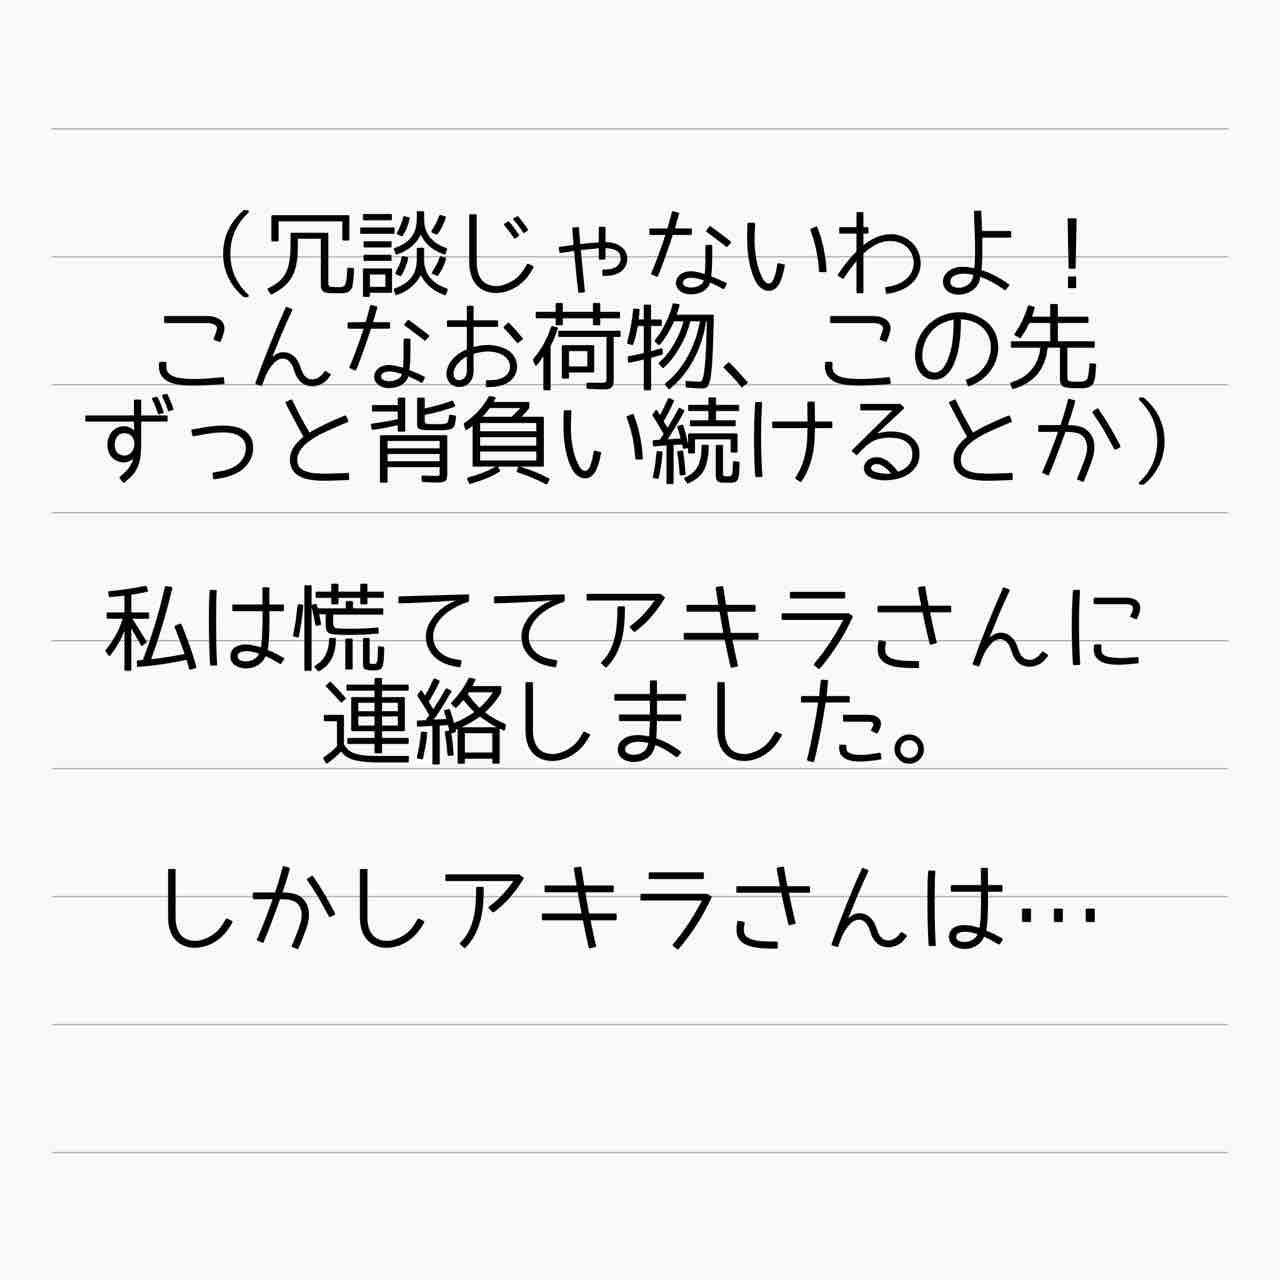 （冗談じゃないわよ！
こんなお荷物、この先
ずっと背負い続けるとか）
私は慌ててアキラさんに
連絡しました。
しかしアキラさんは…